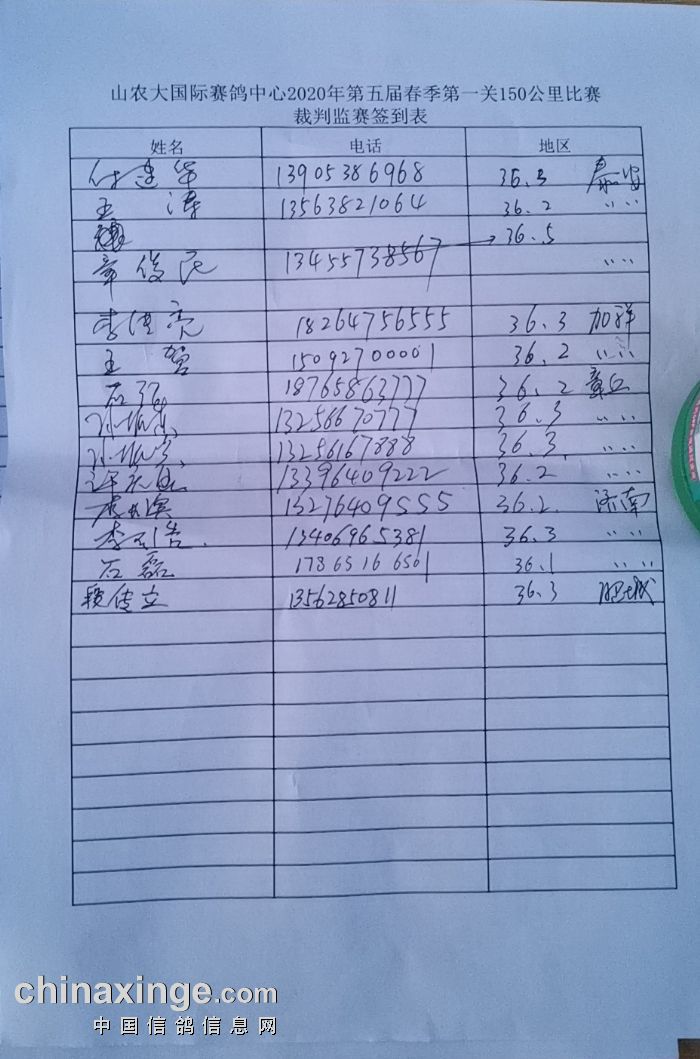 山农大国际赛鸽中心2020年第五届春季第一关150公里比赛
裁判监赛签到表
姓名 电话 地区
付建华 13905386968 36.3 泰安
王涛 13563821064 36.2 〃〃
36.5
章俊民 13455738567 〃〃
李 亮 18264756555 36.3 加祥
王贺 15092700001 36.2 〃〃
石强 18765863777 36.2 章丘
13256670777 36.3 〃〃
13256167888 36.3 〃〃
13396409222 36.2 〃〃
13276409555 36.2 济南
李 13406965381 36.3 〃〃
石磊 17865166561 36.1 〃〃
段传立 13562850811 36.3 肥城
chinaxinge.com
中国信鸽信息网